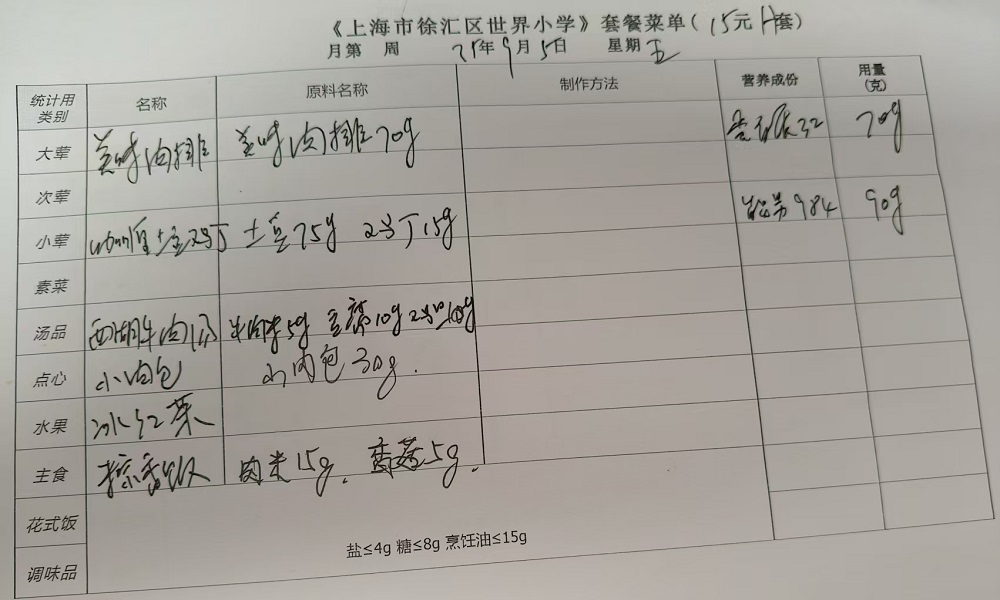 《上海市徐汇区世界小学》套餐菜单(15元 套)
月第 周 25年9月5日 星期五
统计用类别 名称 原料名称 制作方法 营养成份 用量(克)
大荤 美味肉排 美味肉排70g 蛋白质32 70g
次荤
小荤 土豆 丁 土豆75g 丁15g 984 90g
素菜
汤品 西湖牛肉 牛肉末5g 豆腐10g
点心 小肉包 小肉包30g.
水果 冰红菜
主食 饭 肉末15g. 香菇5g.
花式饭
调味品 盐≤4g 糖≤8g 烹饪油≤15g